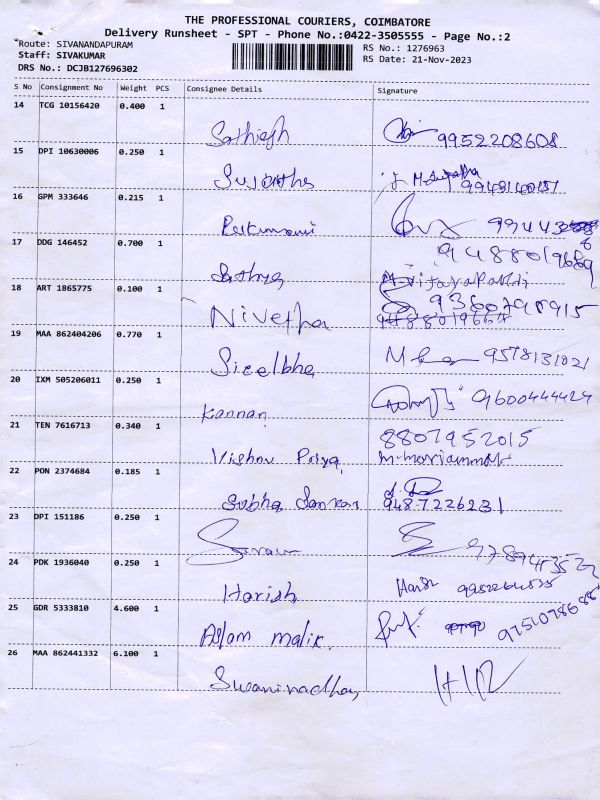 THE PROFESSIONAL COURIERS, COIMBATORE
Delivery Runsheet - SPT - Phone No.:0422-3505555 - Page No.:2
Route: SIVANANDAPURAM RS No.: 1276963
Staff: SIVAKUMAR RS Date: 21-Nov-2023
DRS No.: DCJB127696302
S No Consignment No Weight PCS Consignee Details Signature
14 TCG 10156420 0.400 1
Sathiesh 9952208608
15 DPI 10630006 0.250 1
Sujatha
16 GPM 333646 0.215 1
99443
17 DDG 146452 0.700 1
9488019689
Sathya M-VijayaPandi
18 ART 1865775 0.100 1
9360798915
Nivetha
19 MAA 862404206 0.770 1
9578131021
20 IXM 505206011 0.250 1
9600444424
Kannan
21 TEN 7616713 0.340 1
8807952015
Vishnu Priya M-Mariammal
22 PON 2374684 0.185 1
Subha Sankar 9487226231
23 DPI 151186 0.250 1
24 PDK 1936040 0.250 1
Harish Harish
25 GDR 5333810 4.600 1
Aslam malik 9751078688
26 MAA 862441332 6.100 1
Swaminadhan